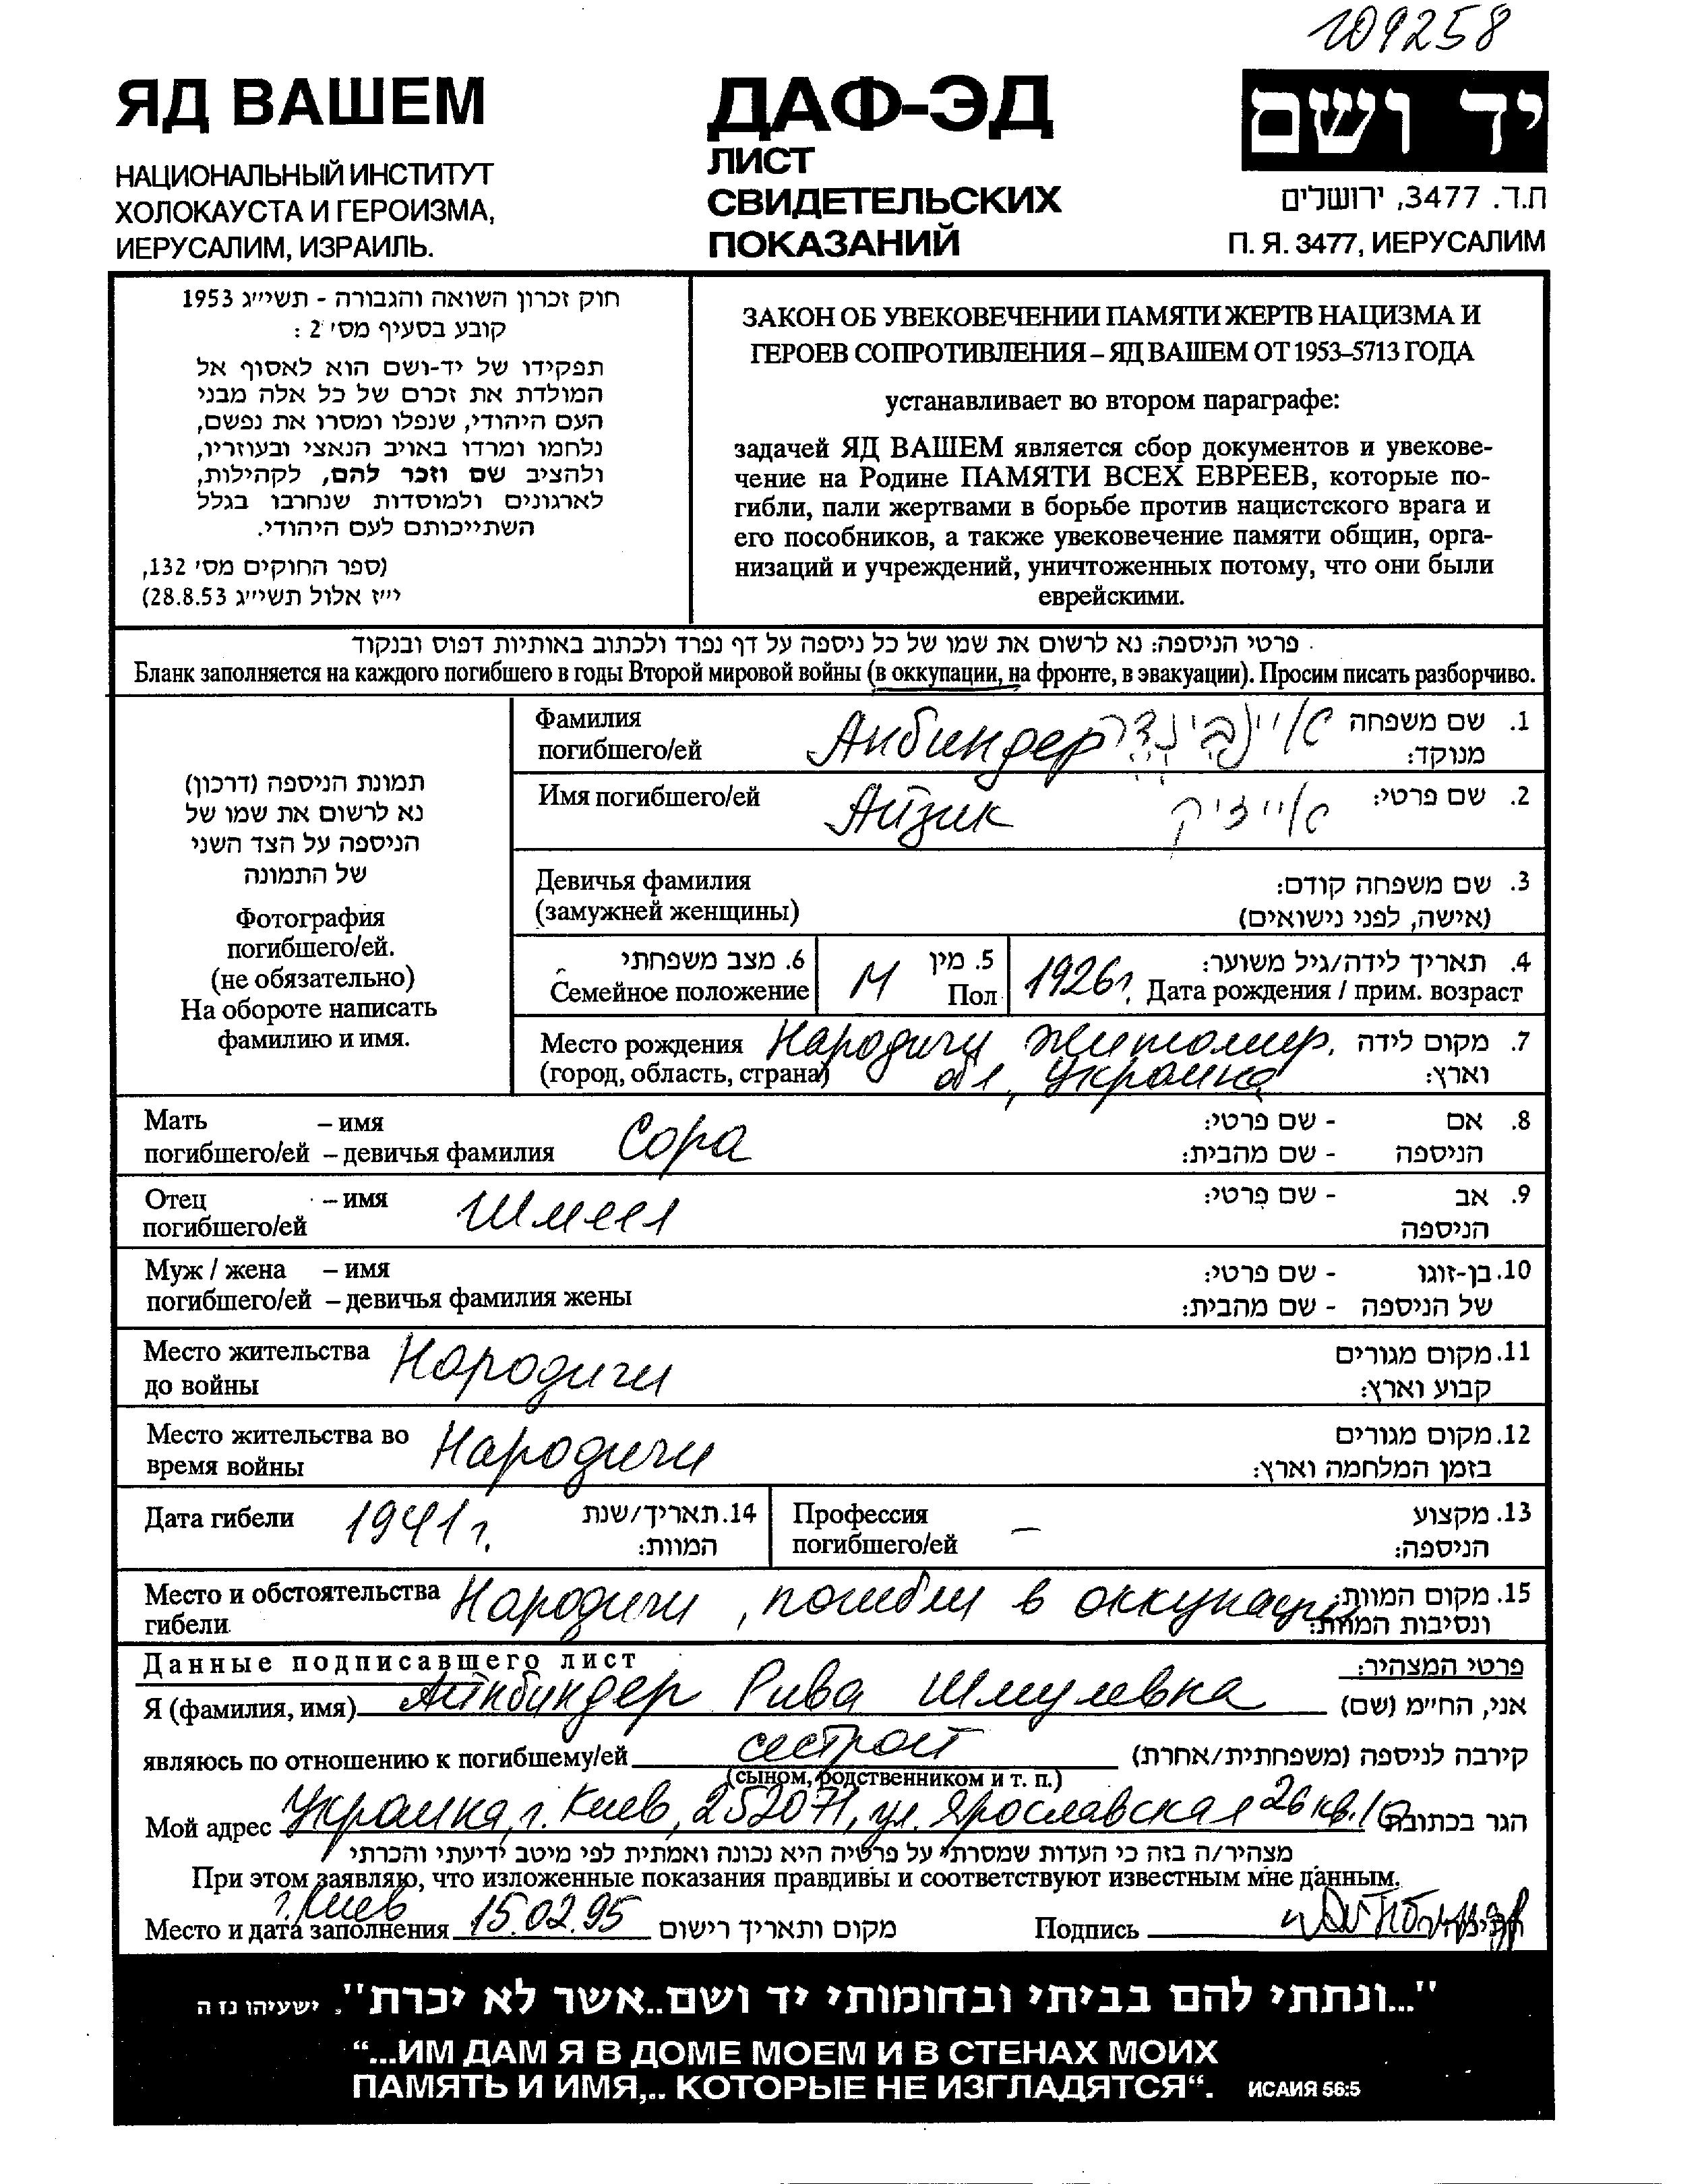 109258
ЯД ВАШЕМ
НАЦИОНАЛЬНЫЙ ИНСТИТУТ
ХОЛОКАУСТА И ГЕРОИЗМА,
ИЕРУСАЛИМ, ИЗРАИЛЬ.
ДАФ-ЭД
ЛИСТ
СВИДЕТЕЛЬСКИХ
ПОКАЗАНИЙ
יד ושם
ת.ד. 3477, ירושלים
П. Я. 3477, ИЕРУСАЛИМ
חוק זכרון השואה והגבורה - תשי״ג 1953
קובע בסעיף מס׳ 2 :
תפקידו של יד-ושם הוא לאסוף אל
המולדת את זכרם של כל אלה מבני
העם היהודי, שנפלו ומסרו את נפשם,
נלחמו ומרדו באויב הנאצי ובעוזריו,
ולהציב שם וזכר להם, לקהילות,
לארגונים ולמוסדות שנחרבו בגלל
השתייכותם לעם היהודי.
(ספר החוקים מס׳ 132,
י״ז אלול תשי״ג 28.8.53)
ЗАКОН ОБ УВЕКОВЕЧЕНИИ ПАМЯТИ ЖЕРТВ НАЦИЗМА И
ГЕРОЕВ СОПРОТИВЛЕНИЯ – ЯД ВАШЕМ ОТ 1953–5713 ГОДА
устанавливает во втором параграфе:
задачей ЯД ВАШЕМ является сбор документов и увекове-
чение на Родине ПАМЯТИ ВСЕХ ЕВРЕЕВ, которые по-
гибли, пали жертвами в борьбе против нацистского врага и
его пособников, а также увековечение памяти общин, орга-
низаций и учреждений, уничтоженных потому, что они были
еврейскими.
פרטי הניספה: נא לרשום את שמו של כל ניספה על דף נפרד ולכתוב באותיות דפוס ובנקוד
Бланк заполняется на каждого погибшего в годы Второй мировой войны (в оккупации, на фронте, в эвакуации). Просим писать разборчиво.
תמונת הניספה (דרכון)
נא לרשום את שמו של
הניספה על הצד השני
של התמונה
Фотография
погибшего/ей.
(не обязательно)
На обороте написать
фамилию и имя.
Фамилия Анбиндер איינבינדר 1. שם משפחה
погибшего/ей מנוקד:
Имя погибшего/ей Айзик אייזיק 2. שם פרטי:
Девичья фамилия 3. שם משפחה קודם:
(замужней женщины) (אישה, לפני נישואים)
6. מצב משפחתי 5. מין 4. תאריך לידה/גיל משוער:
Семейное положение М Пол 1926г. Дата рождения / прим. возраст
Место рождения Народичи Житомир. 7. מקום לידה
(город, область, страна) обл, Украина וארץ:
Мать – имя Сора 8. אם - שם פרטי:
погибшего/ей – девичья фамилия הניספה - שם מהבית:
Отец – имя Шмел 9. אב - שם פרטי:
погибшего/ей הניספה
Муж / жена – имя 10. בן-זוגו - שם פרטי:
погибшего/ей – девичья фамилия жены של הניספה - שם מהבית:
Место жительства Народичи 11. מקום מגורים
до войны קבוע וארץ:
Место жительства во Народичи 12. מקום מגורים
время войны בזמן המלחמה וארץ:
Дата гибели 1941г. 14. תאריך/שנת Профессия – 13. מקצוע
המוות: погибшего/ей הניספה:
Место и обстоятельства Народичи, погибли в оккупации 15. מקום המוות:
гибели ונסיבות המוות:
Данные подписавшего лист פרטי המצהיר:
Я (фамилия, имя) Айнбиндер Рива Шмулевна אני, החי״מ (שם)
являюсь по отношению к погибшему/ей сестрой קירבה לניספה (משפחתית/אחרת)
(сыном, родственником и т. п.)
Мой адрес Украина, г. Киев, 252071, ул. Ярославская 26 кв. הגר בכתובת
מצהיר/ה בזה כי העדות שמסרתי על פרטיה היא נכונה ואמתית לפי מיטב ידיעתי והכרתי
При этом заявляю, что изложенные показания правдивы и соответствуют известным мне данным.
г. Киев
Место и дата заполнения 15.02.95 מקום ותאריך רישום Подпись חתימה
"...ונתתי להם בביתי ובחומותי יד ושם..אשר לא יכרת". ישעיהו נז ה
“...ИМ ДАМ Я В ДОМЕ МОЕМ И В СТЕНАХ МОИХ
ПАМЯТЬ И ИМЯ,.. КОТОРЫЕ НЕ ИЗГЛАДЯТСЯ“. ИСАИЯ 56:5